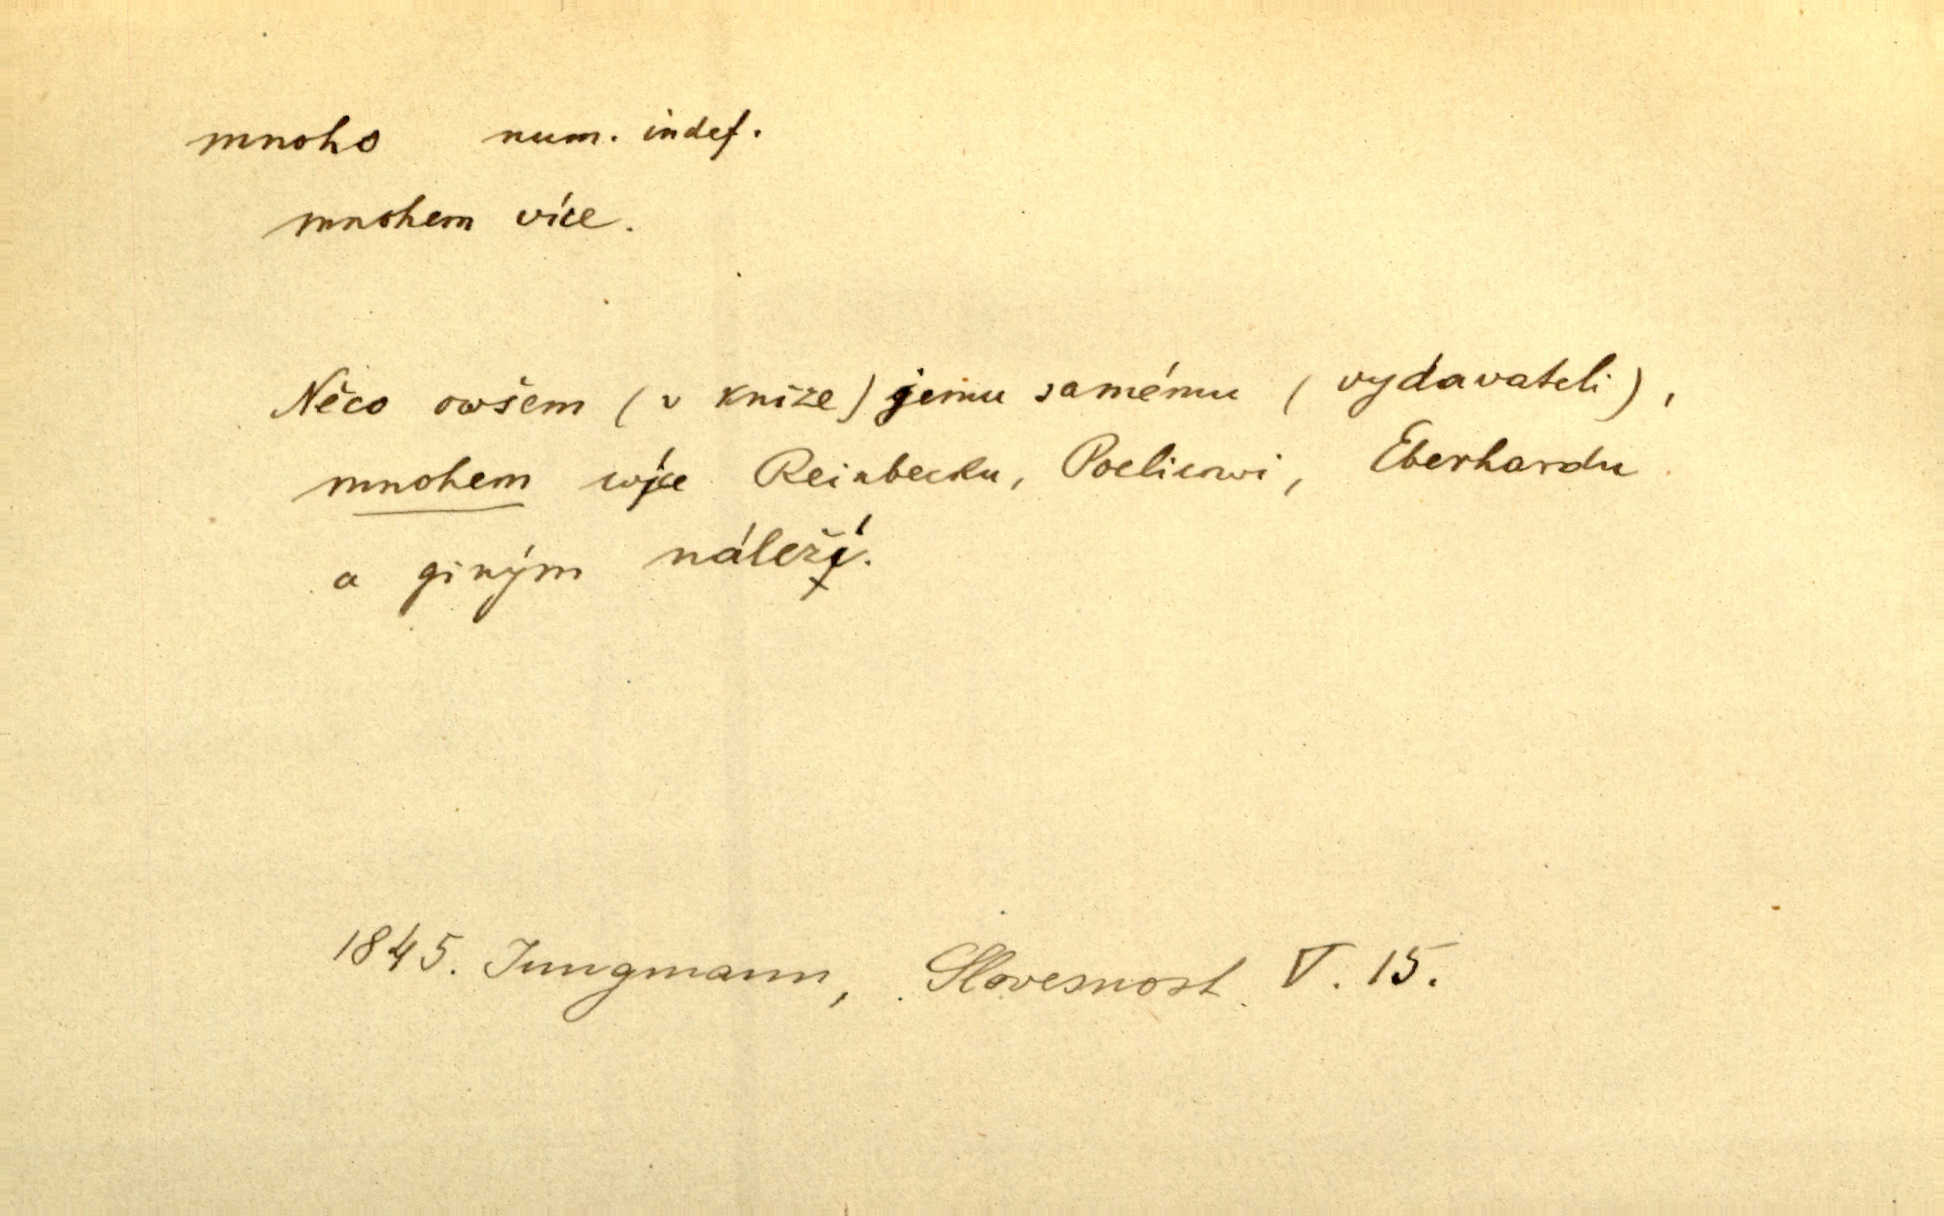 mnoho num. indef.
mnohem více.
Něco owšem (v knize) jemu samému (vydavateli),
mnohem wjce Reinbecku, Poelicowi, Eberhardu
a giným náleží.
1845. Jungmann, Slovesnost V. 15.